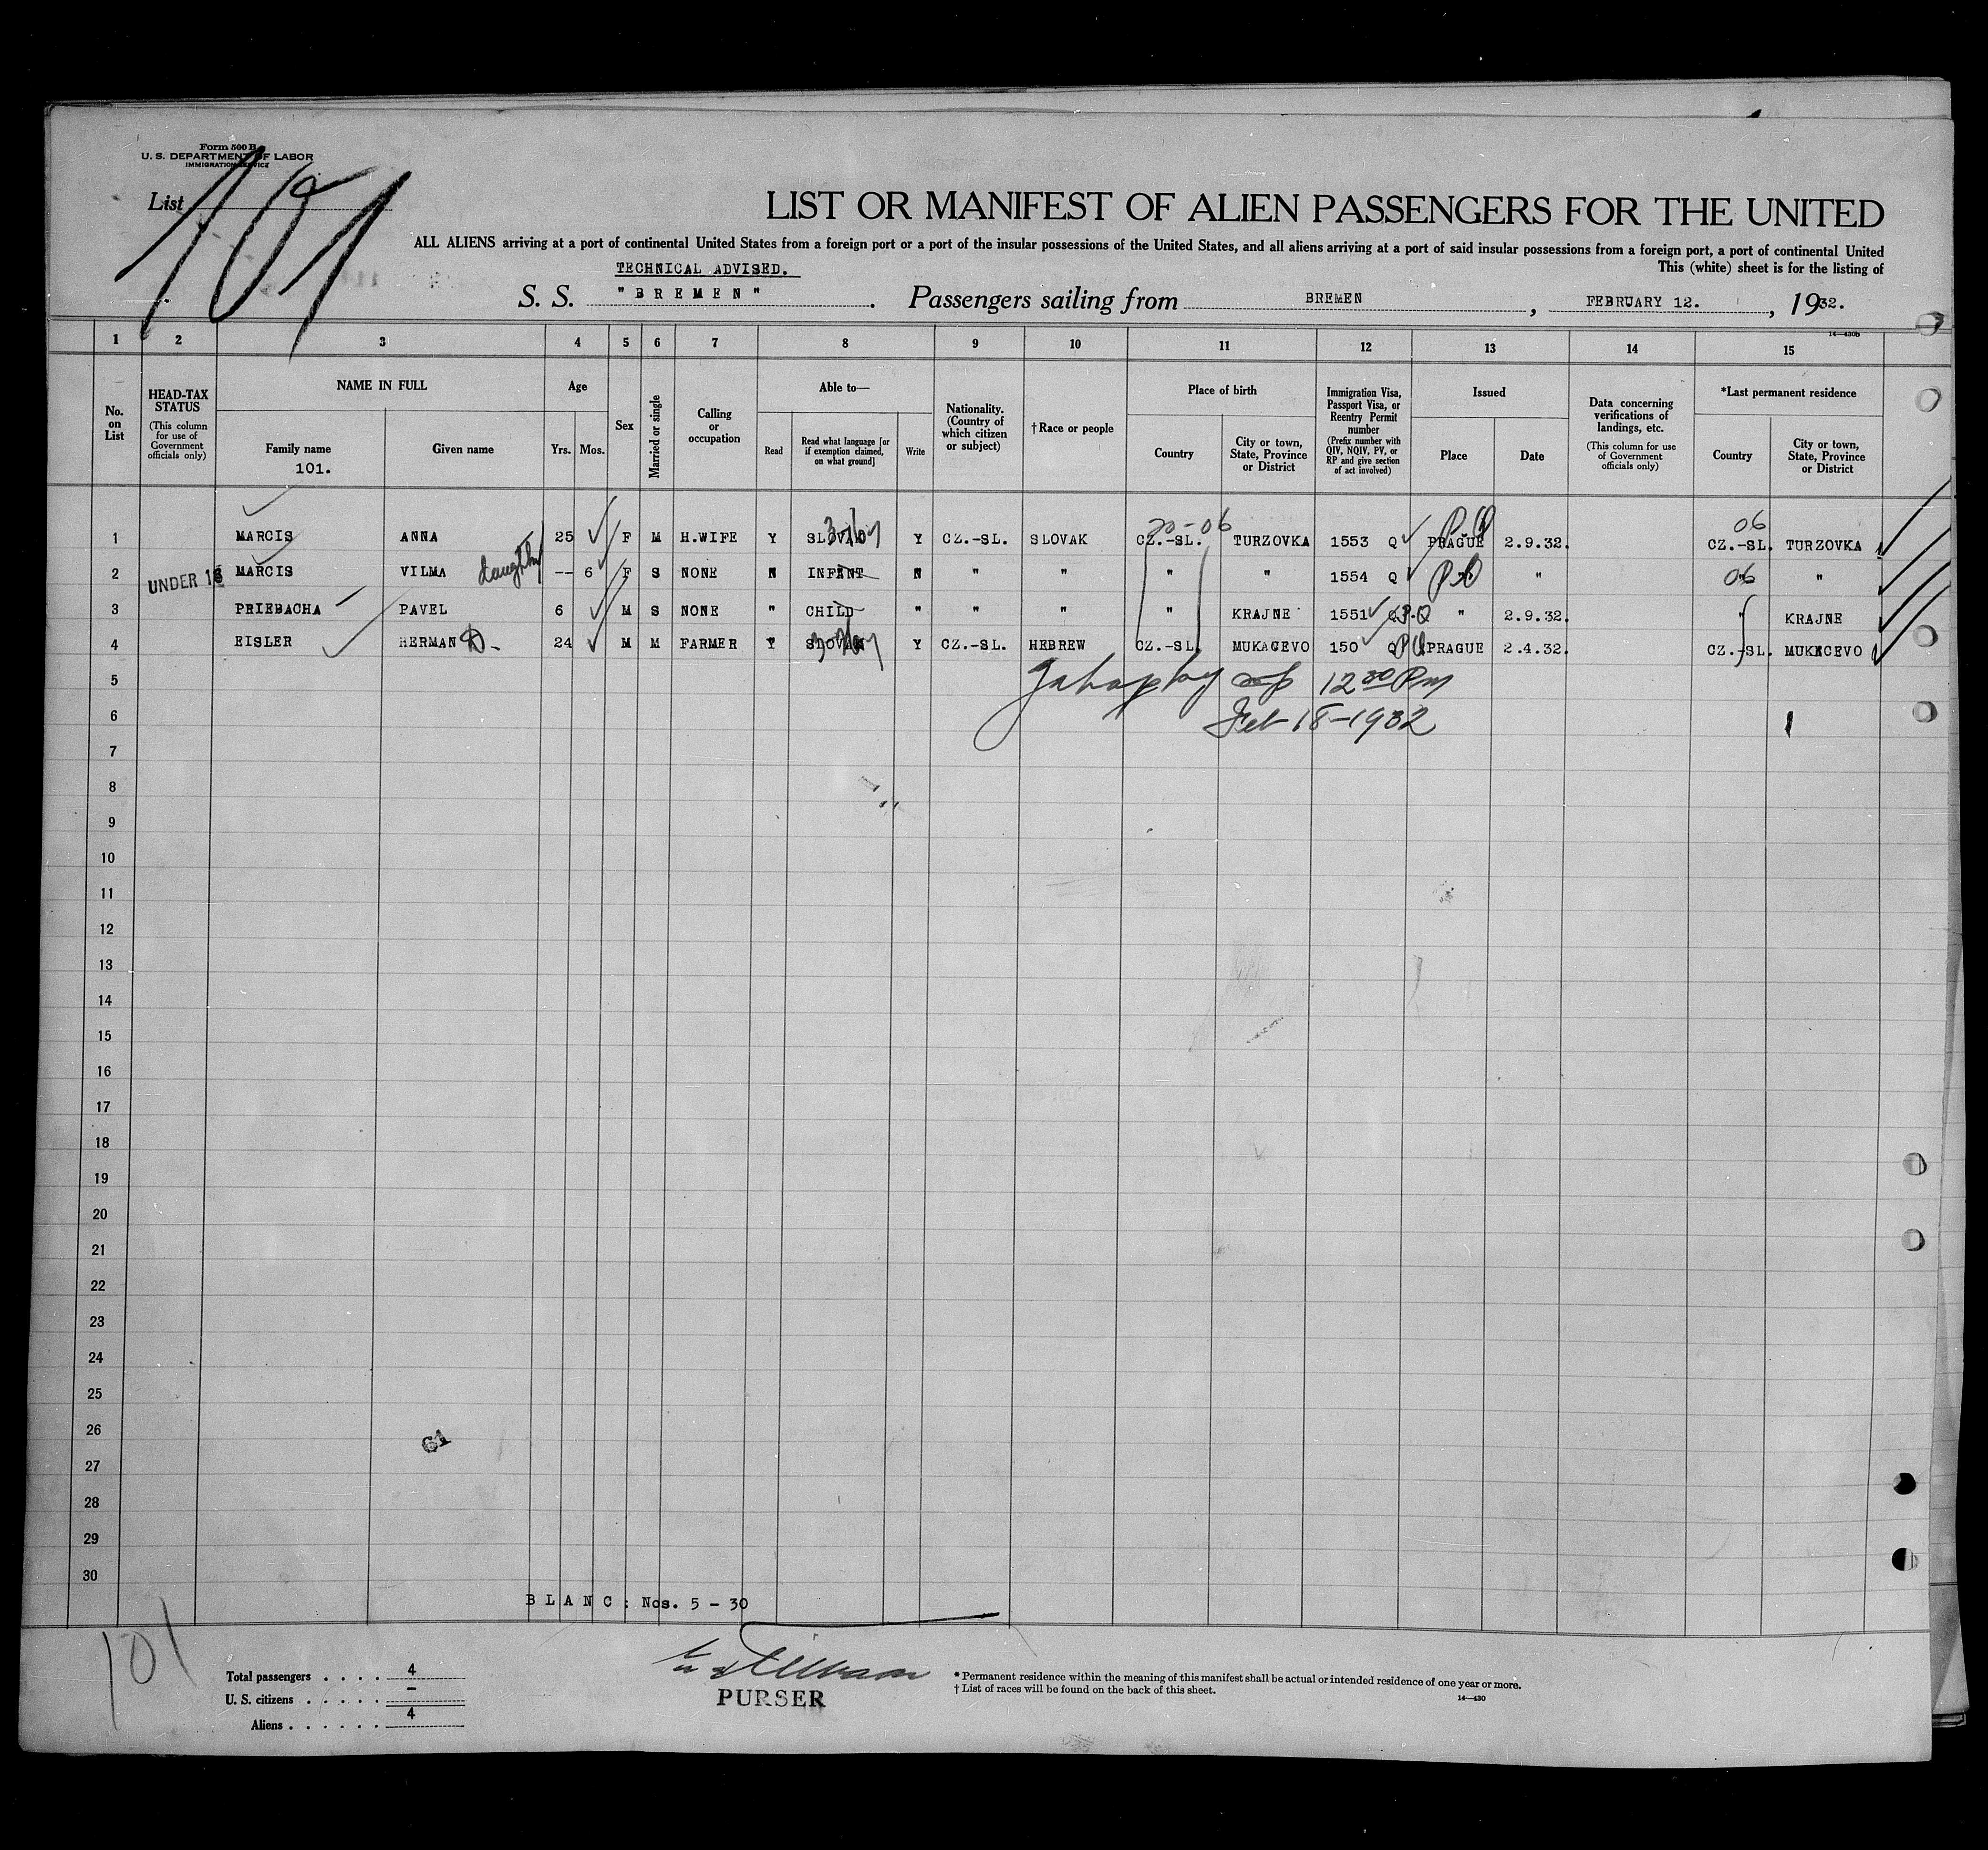 Form 500 B
U. S. DEPARTMENT OF LABOR
IMMIGRATION SERVICE
List 101
LIST OR MANIFEST OF ALIEN PASSENGERS FOR THE UNITED
ALL ALIENS arriving at a port of continental United States from a foreign port or a port of the insular possessions of the United States, and all aliens arriving at a port of said insular possessions from a foreign port, a port of continental United
This (white) sheet is for the listing of
TECHNICAL ADVISED.
S. S. "BREMEN" . Passengers sailing from BREMEN , FEBRUARY 12. , 1932.
14—430b
1 2 3 4 5 6 7 8 9 10 11 12 13 14 15
No. on List
HEAD-TAX STATUS (This column for use of Government officials only)
NAME IN FULL
Family name
101.
Given name
Age
Yrs. Mos.
Sex
Married or single
Calling or occupation
Able to—
Read
Read what language [or if exemption claimed, on what ground]
Write
Nationality. (Country of which citizen or subject)
†Race or people
Place of birth
Country
City or town, State, Province or District
Immigration Visa, Passport Visa, or Reentry Permit number (Prefix number with QIV, NQIV, PV, or RP and give section of act involved)
Issued
Place
Date
Data concerning verifications of landings, etc. (This column for use of Government officials only)
*Last permanent residence
Country
City or town, State, Province or District
20-06 06
1 MARCIS ANNA 25 F M H.WIFE Y SLOVAK Y CZ.-SL. SLOVAK CZ.-SL. TURZOVKA 1553 Q PRAGUE 2.9.32. CZ.-SL. TURZOVKA
2 UNDER 16 MARCIS VILMA daughter -- 6 F S NONE N INFANT N " " " " 1554 Q " " 06 "
3 PRIEBACHA PAVEL 6 M S NONE " CHILD " " " " KRAJNE 1551 Q P.Q " 2.9.32. " KRAJNE
4 EISLER HERMAN D. 24 M M FARMER Y SLOVAK Y CZ.-SL. HEBREW CZ.-SL. MUKACEVO 150 Q PRAGUE 2.4.32. CZ.-SL. MUKACEVO
5 12 30 Pm
6 Feb 18-1932
7
8
9
10
11
12
13
14
15
16
17
18
19
20
21
22
23
24
25
26
27
28
29
30
61
BLANC: Nos. 5 - 30
101
Total passengers . . . . 4
U. S. citizens . . . . . -
Aliens . . . . . . 4
PURSER
* Permanent residence within the meaning of this manifest shall be actual or intended residence of one year or more.
† List of races will be found on the back of this sheet.
14—430